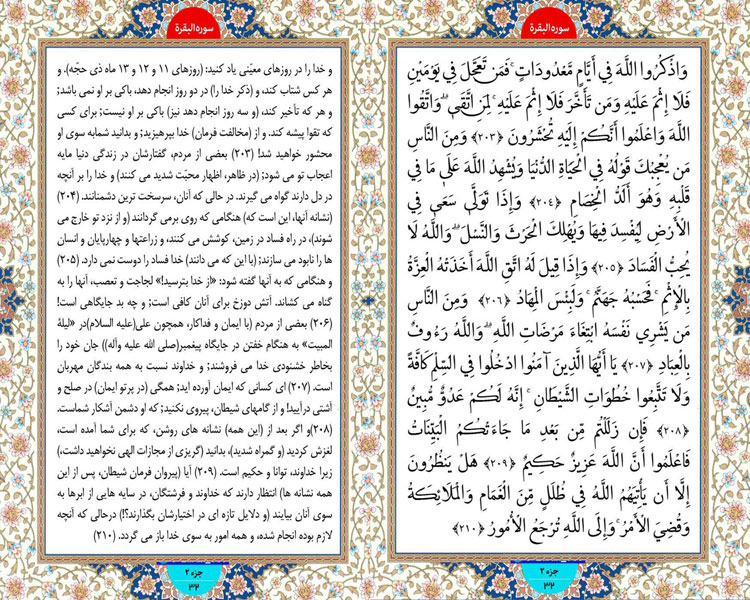 سورهالبقرة
وَاذْكُرُوا اللَّهَ فِي أَيَّامٍ مَّعْدُودَاتٍ ۚ فَمَن تَعَجَّلَ فِي يَوْمَيْنِ
فَلَا إِثْمَ عَلَيْهِ وَمَن تَأَخَّرَ فَلَا إِثْمَ عَلَيْهِ ۚ لِمَنِ اتَّقَىٰ ۗ وَاتَّقُوا
اللَّهَ وَاعْلَمُوا أَنَّكُمْ إِلَيْهِ تُحْشَرُونَ ﴿۲۰۳﴾ وَمِنَ النَّاسِ
مَن يُعْجِبُكَ قَوْلُهُ فِي الْحَيَاةِ الدُّنْيَا وَيُشْهِدُ اللَّهَ عَلَىٰ مَا فِي
قَلْبِهِ وَهُوَ أَلَدُّ الْخِصَامِ ﴿۲۰٤﴾ وَإِذَا تَوَلَّىٰ سَعَىٰ فِي
الْأَرْضِ لِيُفْسِدَ فِيهَا وَيُهْلِكَ الْحَرْثَ وَالنَّسْلَ ۗ وَاللَّهُ لَا
يُحِبُّ الْفَسَادَ ﴿۲۰۵﴾ وَإِذَا قِيلَ لَهُ اتَّقِ اللَّهَ أَخَذَتْهُ الْعِزَّةُ
بِالْإِثْمِ ۚ فَحَسْبُهُ جَهَنَّمُ ۚ وَلَبِئْسَ الْمِهَادُ ﴿۲۰۶﴾ وَمِنَ النَّاسِ
مَن يَشْرِي نَفْسَهُ ابْتِغَاءَ مَرْضَاتِ اللَّهِ ۗ وَاللَّهُ رَءُوفٌ
بِالْعِبَادِ ﴿۲۰۷﴾ يَا أَيُّهَا الَّذِينَ آمَنُوا ادْخُلُوا فِي السِّلْمِ كَافَّةً
وَلَا تَتَّبِعُوا خُطُوَاتِ الشَّيْطَانِ ۚ إِنَّهُ لَكُمْ عَدُوٌّ مُّبِينٌ
﴿۲۰۸﴾ فَإِن زَلَلْتُم مِّن بَعْدِ مَا جَاءَتْكُمُ الْبَيِّنَاتُ
فَاعْلَمُوا أَنَّ اللَّهَ عَزِيزٌ حَكِيمٌ ﴿۲۰۹﴾ هَلْ يَنظُرُونَ
إِلَّا أَن يَأْتِيَهُمُ اللَّهُ فِي ظُلَلٍ مِّنَ الْغَمَامِ وَالْمَلَائِكَةُ
وَقُضِيَ الْأَمْرُ ۚ وَإِلَى اللَّهِ تُرْجَعُ الْأُمُورُ ﴿۲۱۰﴾
جزء ۲
۳۲
سورهالبقرة
و خدا را در روزهای معیّنی یاد کنید: (روزهای ۱۱ و ۱۲ و ۱۳ ماه ذی حجّه). و
هر کس شتاب کند، و (ذکر خدا را) در دو روز انجام دهد، باکی بر او نمی باشد;
و هر که تأخیر کند، (و سه روز انجام دهد نیز) باکی بر او نیست; برای کسی
که تقوا پیشه کند. و از (مخالفت فرمان) خدا بپرهیزید; و بدانید شمابه سوی او
محشور خواهید شد! (۲۰۳) بعضی از مردم، گفتارشان در زندگی دنیا مایه
اعجاب تو می شود; (در ظاهر، اظهار محبّت شدید می کنند) و خدا را بر آنچه
در دل دارند گواه می گیرند. در حالی که آنان، سرسخت ترین دشمنانند. (۲۰۴)
(نشانه آنها، این است که) هنگامی که روی برمی گردانند (و از نزد تو خارج می
شوند)، در راه فساد در زمین، کوشش می کنند، و زراعتها و چهارپایان و انسان
ها را نابود می سازند; (با این که می دانند) خدا فساد را دوست نمی دارد. (۲۰۵)
و هنگامی که به آنها گفته شود: «از خدا بترسید!» لجاجت و تعصب، آنها را به
گناه می کشاند. آتش دوزخ برای آنان کافی است; و چه بد جایگاهی است!
(۲۰۶) بعضی از مردم (با ایمان و فداکار، همچون علی(علیه السلام)در «لیلة
المبیت» به هنگام خفتن در جایگاه پیغمبر(صلی الله علیه وآله)) جان خود را
بخاطر خشنودی خدا می فروشند; و خداوند نسبت به همه بندگان مهربان
است. (۲۰۷) ای کسانی که ایمان آورده اید; همگی (در پرتو ایمان) در صلح و
آشتی درآیید! و از گامهای شیطان، پیروی نکنید; که او دشمن آشکار شماست.
(۲۰۸)و اگر بعد از (این همه) نشانه های روشن، که برای شما آمده است،
لغزش کردید (و گمراه شدید)، بدانید (گریزی از مجازات الهی نخواهید داشت،)
زیرا خداوند، توانا و حکیم است. (۲۰۹) آیا (پیروان فرمان شیطان، پس از این
همه نشانه ها) انتظار دارند که خداوند و فرشتگان، در سایه هایی از ابرها به
سوی آنان بیایند (و دلایل تازه ای در اختیارشان بگذارند؟!) درحالی که آنچه
لازم بوده انجام شده، و همه امور به سوی خدا باز می گردد. (۲۱۰)
جزء ۲
۳۲